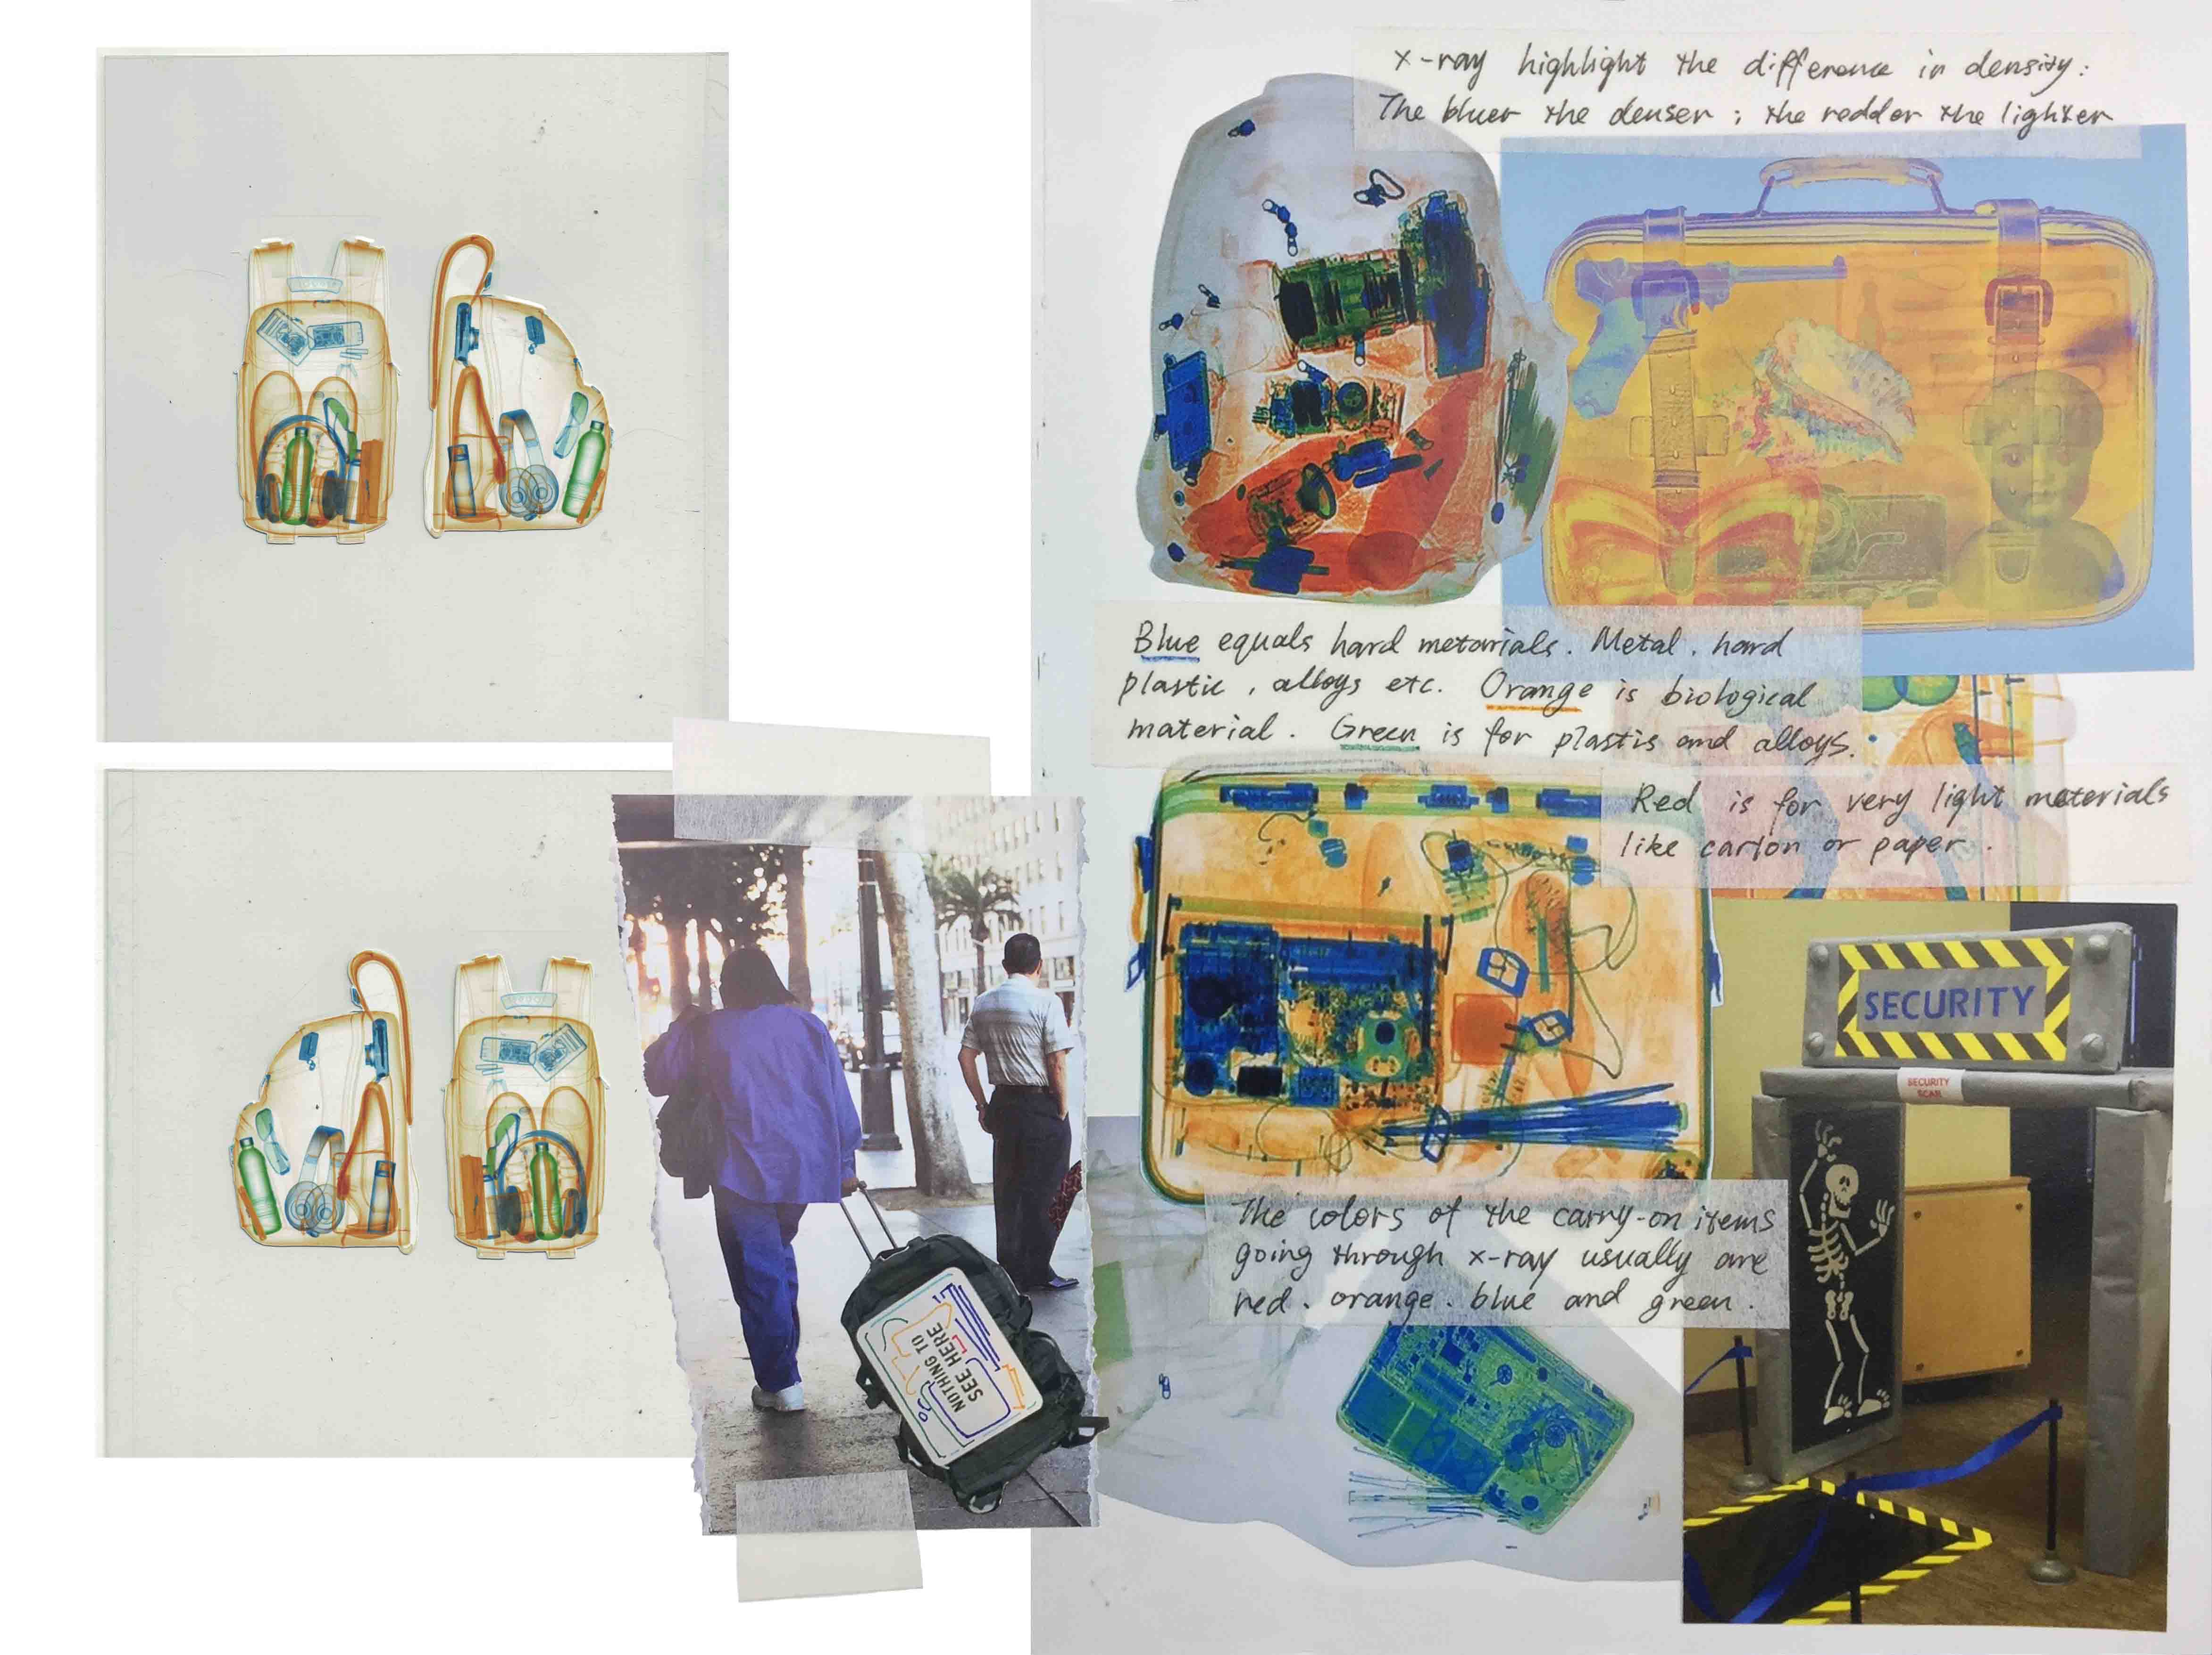 x-ray highlight the difference in density:
The bluer the denser; the redder the lighter
Blue equals hard metarials. Metal, hard
plastic, alloys etc. Orange is biological
material. Green is for plastis and alloys.
Red is for very light materials
like carton or paper.
SECURITY
SECURITY
SCAN
The colors of the carry-on items
going through x-ray usually are
red. orange. blue and green.
NOTHING TO
SEE HERE